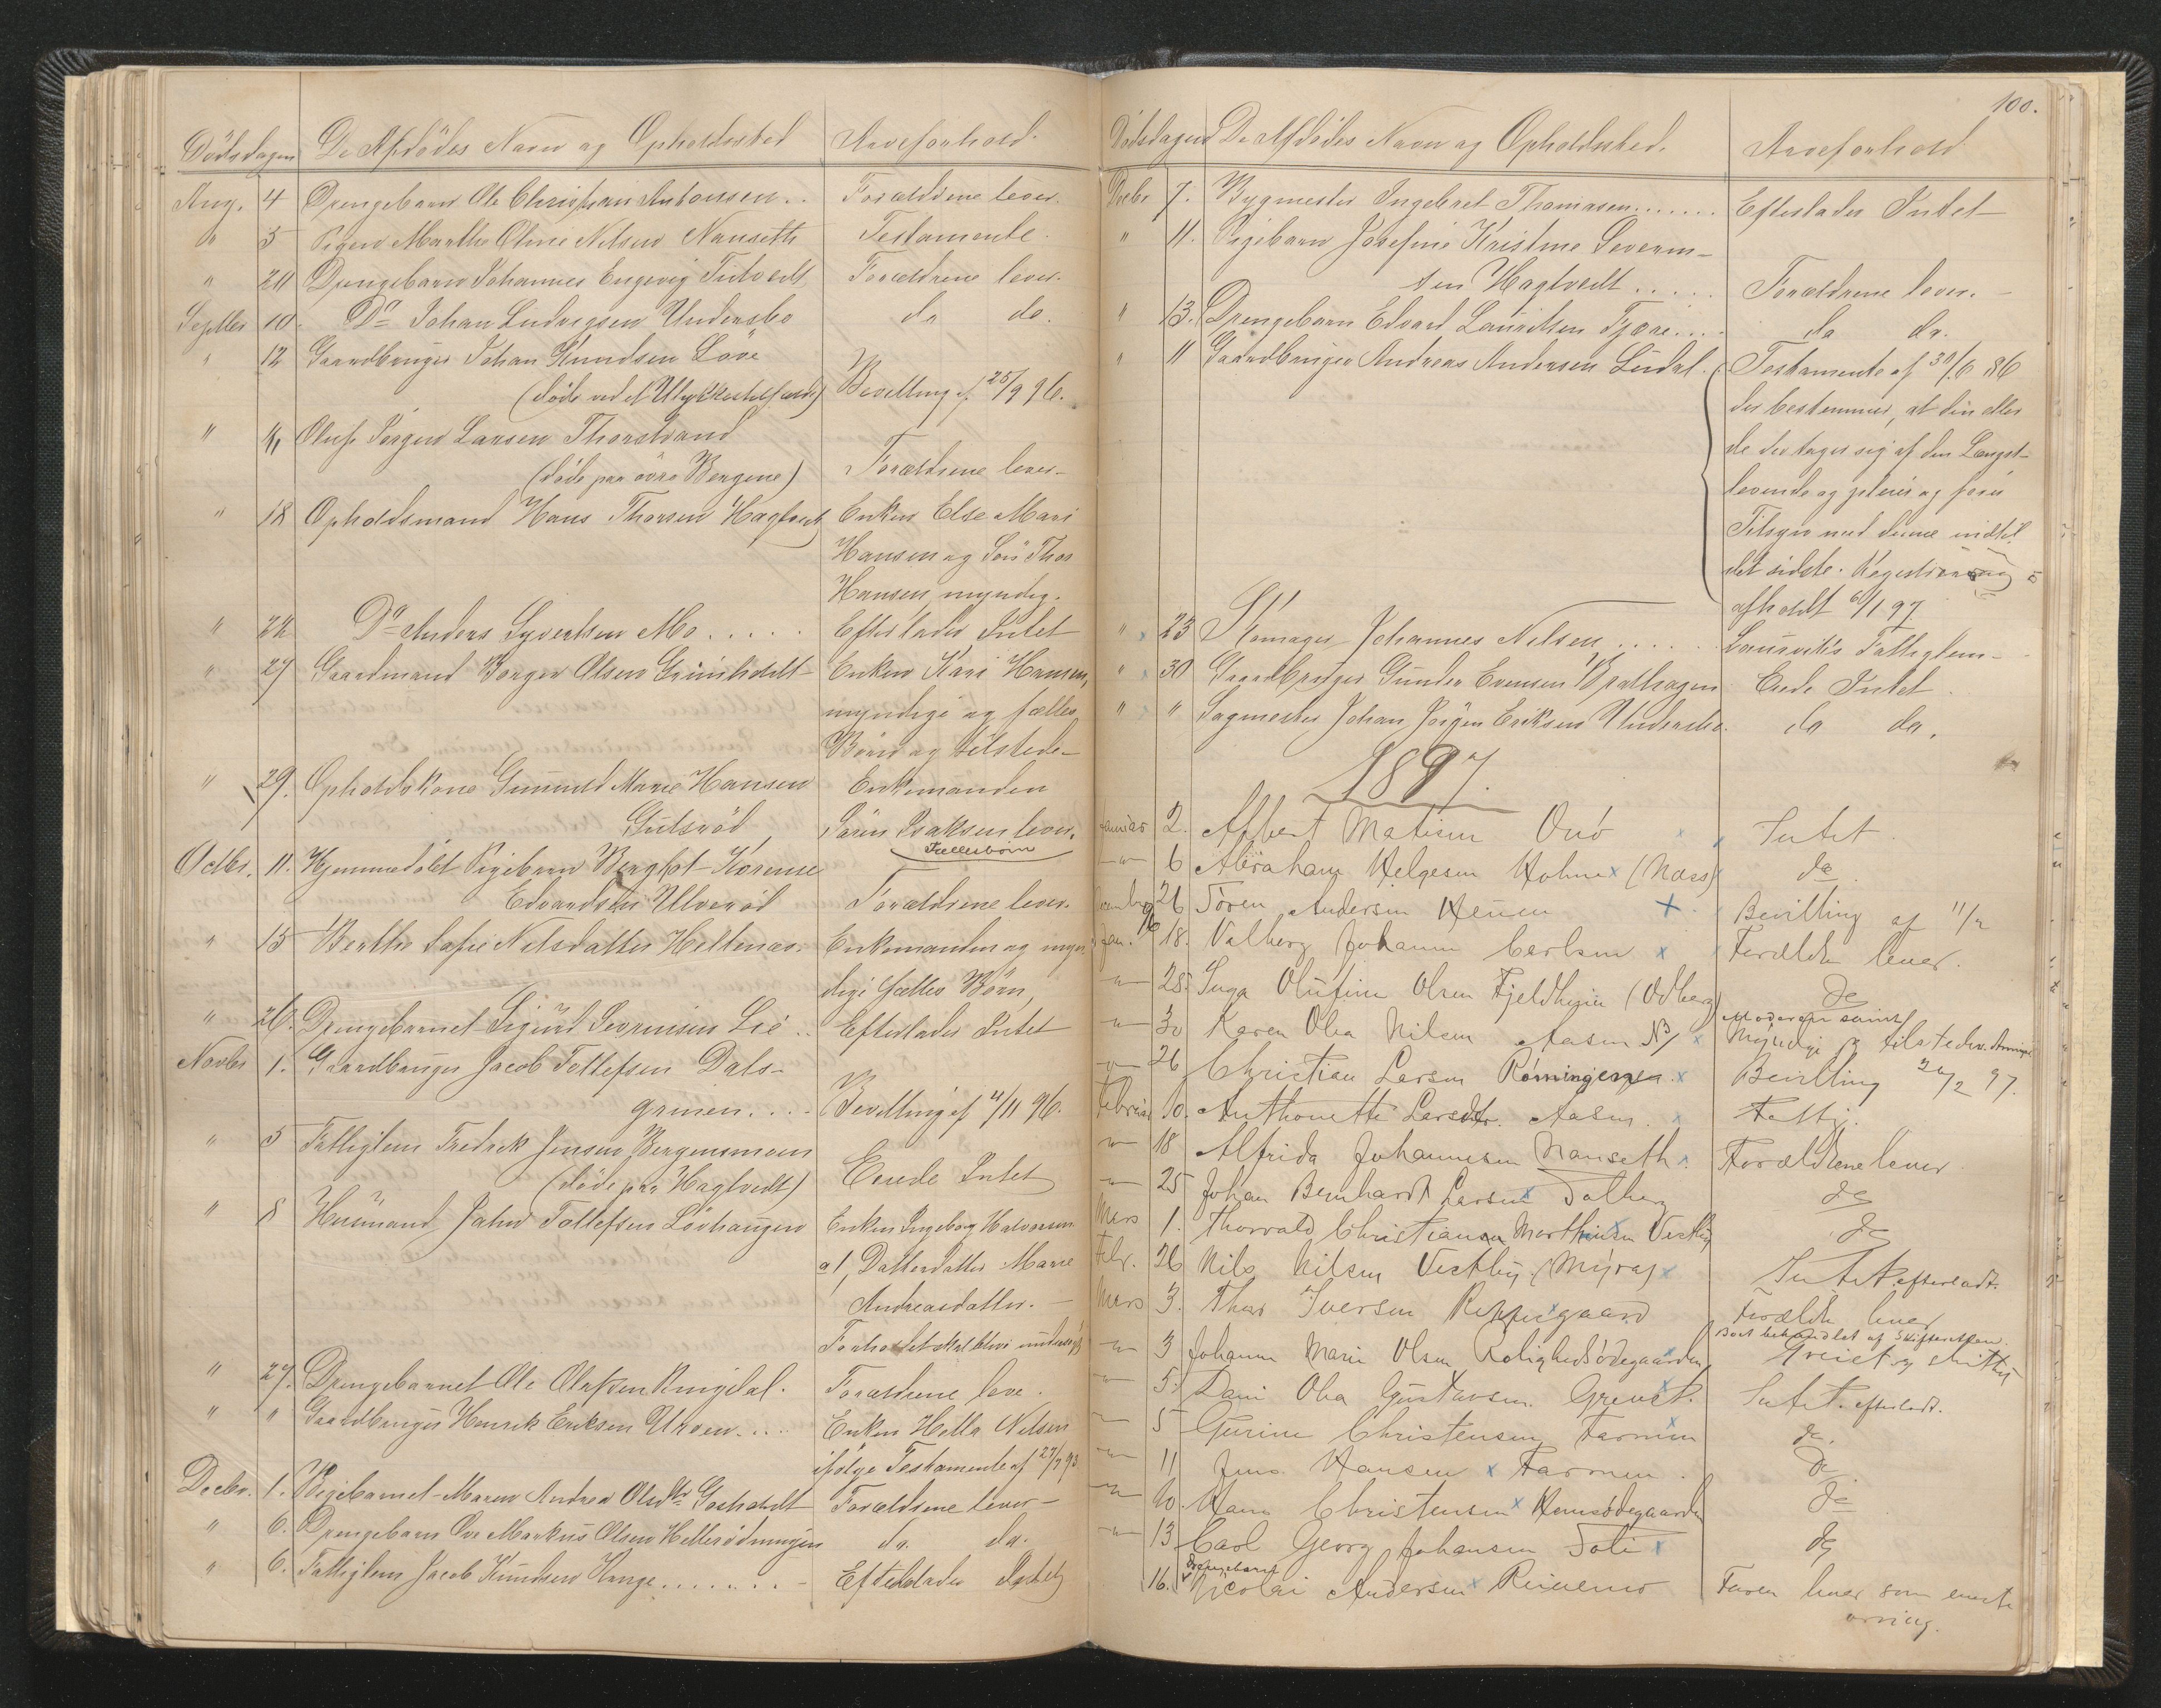 Dødsdagen De Afdødes Navn og Opholdssted Arveforhold.
Aug. 4 Drengebarn Ole Christian Antonsen.. Forældrene lever.
" 5 Pigen Marthe Oline Nilsen Nanseth Testamente.
" 20 Drengebarn Johannes Engevig Tutvedt Forældrene lever.
Septbr 10. Do Johan Ludvigsen Undersbo do do.
" 12 Gaardbruger Johan Knudsen Løve
(døde ved et Ulykkestilfælde) Bevilling af 25/9 96.
" Oluf Jørgen Larsen Thorstrand
(døde paa øvre Bergene) Forældrene lever
" 18 Opholdsmand Hans Thorsen Hagtvedt Enken Else Mari
Hansen og Søn Thor
Hansen, myndig.
" 22 Do Anders Syvertsen Mo..... Efterlader Intet
" 27 Gaardmand Borger Olsen Grimholdt Enken Kari Hansen,
myndige og fælles
Børn og tilstede
" 29. Opholdskone Gunnild Marie Hansen Enkemanden
Gutsrød, Søren Isaksen lever.
Fællesbørn
Octbr. 11. Hjemmedøbt Pigebarn Bergljot Korense
Edvardsen Ulverød Forældrene lever.
" 15 Berthe Sofie Nilsdatter Heltenæs. Enkemanden og myn-
dige fælles Børn,
" 26. Drengebarnet Sigurd Sevrinsen Lie.. Efterlader Intet
Novbr 1. Gaardbruger Jacob Tollefsen Dals-
grinen.... Bevilling af 4/11 96.
" 5 Fattiglem Fredrik Jensen Bergensmoen
(døde paa Hagtvedt) Eiede Intet
" 8 Husmand John Tollefsen Løvhaugen Enken Ingeborg Halvorsen
o 1, Datterdatter Marie
Andreasdatter. —
Forholdet skal blive undersøgt
" 27. Drengebarnet Ole Olafsen Ringdal. Forældrene leve.
" " Gaardbruger Henrik Eriksen Ukven.... Enken Hella Nilsen
ifølge Testamente af 27/7 93
Decbr. 1. Pigebarnet Maren Andrea Olsdtr Gosholdt Forældrene lever —
" 6. Drengebarn Ove Markus Olsen Hellerødningen do. do.
" 6. Fattiglem Jacob Knudsen Hauge....... Efterlader Intet
100.
Dødsdagen De Afdødes Navn og Opholdssted. Arveforhold
Decbr 7. Bygmester Ingebret Thomasen...... Efterlader Intet
" 11. Pigebarn Josefine Kristine Severin-
sen Hagtvedt..... Forældrene lever. —
" 13. Drengebarn Edvard Lauritsen Fjære.... do do.
" 11 Gaardbruger Andreas Andersen Lindal. Testamente af 30/6 86
der bestemmer, at den eller
de der tager sig af den Længst-
levende og pleier og fører
Tilsyn med denne indtil
det sidste. Registrering
afholdt 6/1 97
" 23 Skomager Johannes Nilsen...... Laurviks Fattiglem —
" 30 Gaardbruger Gunder Evensen Brathagen Eiede Intet
" " Sagmester Johan Jørgen Eriksen Undersbo. do do.
1897.
Januar 2. Albert Matisen Onø Intet.
6 Abraham Helgesen Holmen (Næss) do.
Decembr 96 26 Søren Andersen Heisen Bevilling af 11/2
Jan. 18. Valborg Johanne Carlsen Forældre lever.
28. Inga Olufine Olsen Fjeldheim (Odberg) do
30 Karen Olea Nilsen Aasen Moderen samt
Myndige og tilstede
26 Christian Larsen Rønningen Bevilling 26/2 97.
Februar 10. Anthonette Larsdtr. Aasen. Fattig.
18 Alfrida Johannesen Nanseth. Forældrene lever
25 Johan Bernhardt Larsen Solberg do
Mars 1. Thorvald Christiansen Marthinsen Vestby do
Febr. 26 Nils Nilsen Vestby (Myra) Intet efterladt.
Mars 3. Thor Iversen Reppesgaard Forældre lever
3 Johanne Marie Olsen Rolighedsødegaarden Boet behandlet af Skifteretten.
5. Dani Olea Gustavsen Grevst. Intet efterladt.
5 Gurine Christensen Farmen do.
11 Jens Hansen Farmen. do.
10. Hans Christensen Hemsødegaarden do
13 Carl Georg Johansen Toli do
Drengebarnet
16. Nicolai Andersen Reinemo Faren lever som eneste
arving.